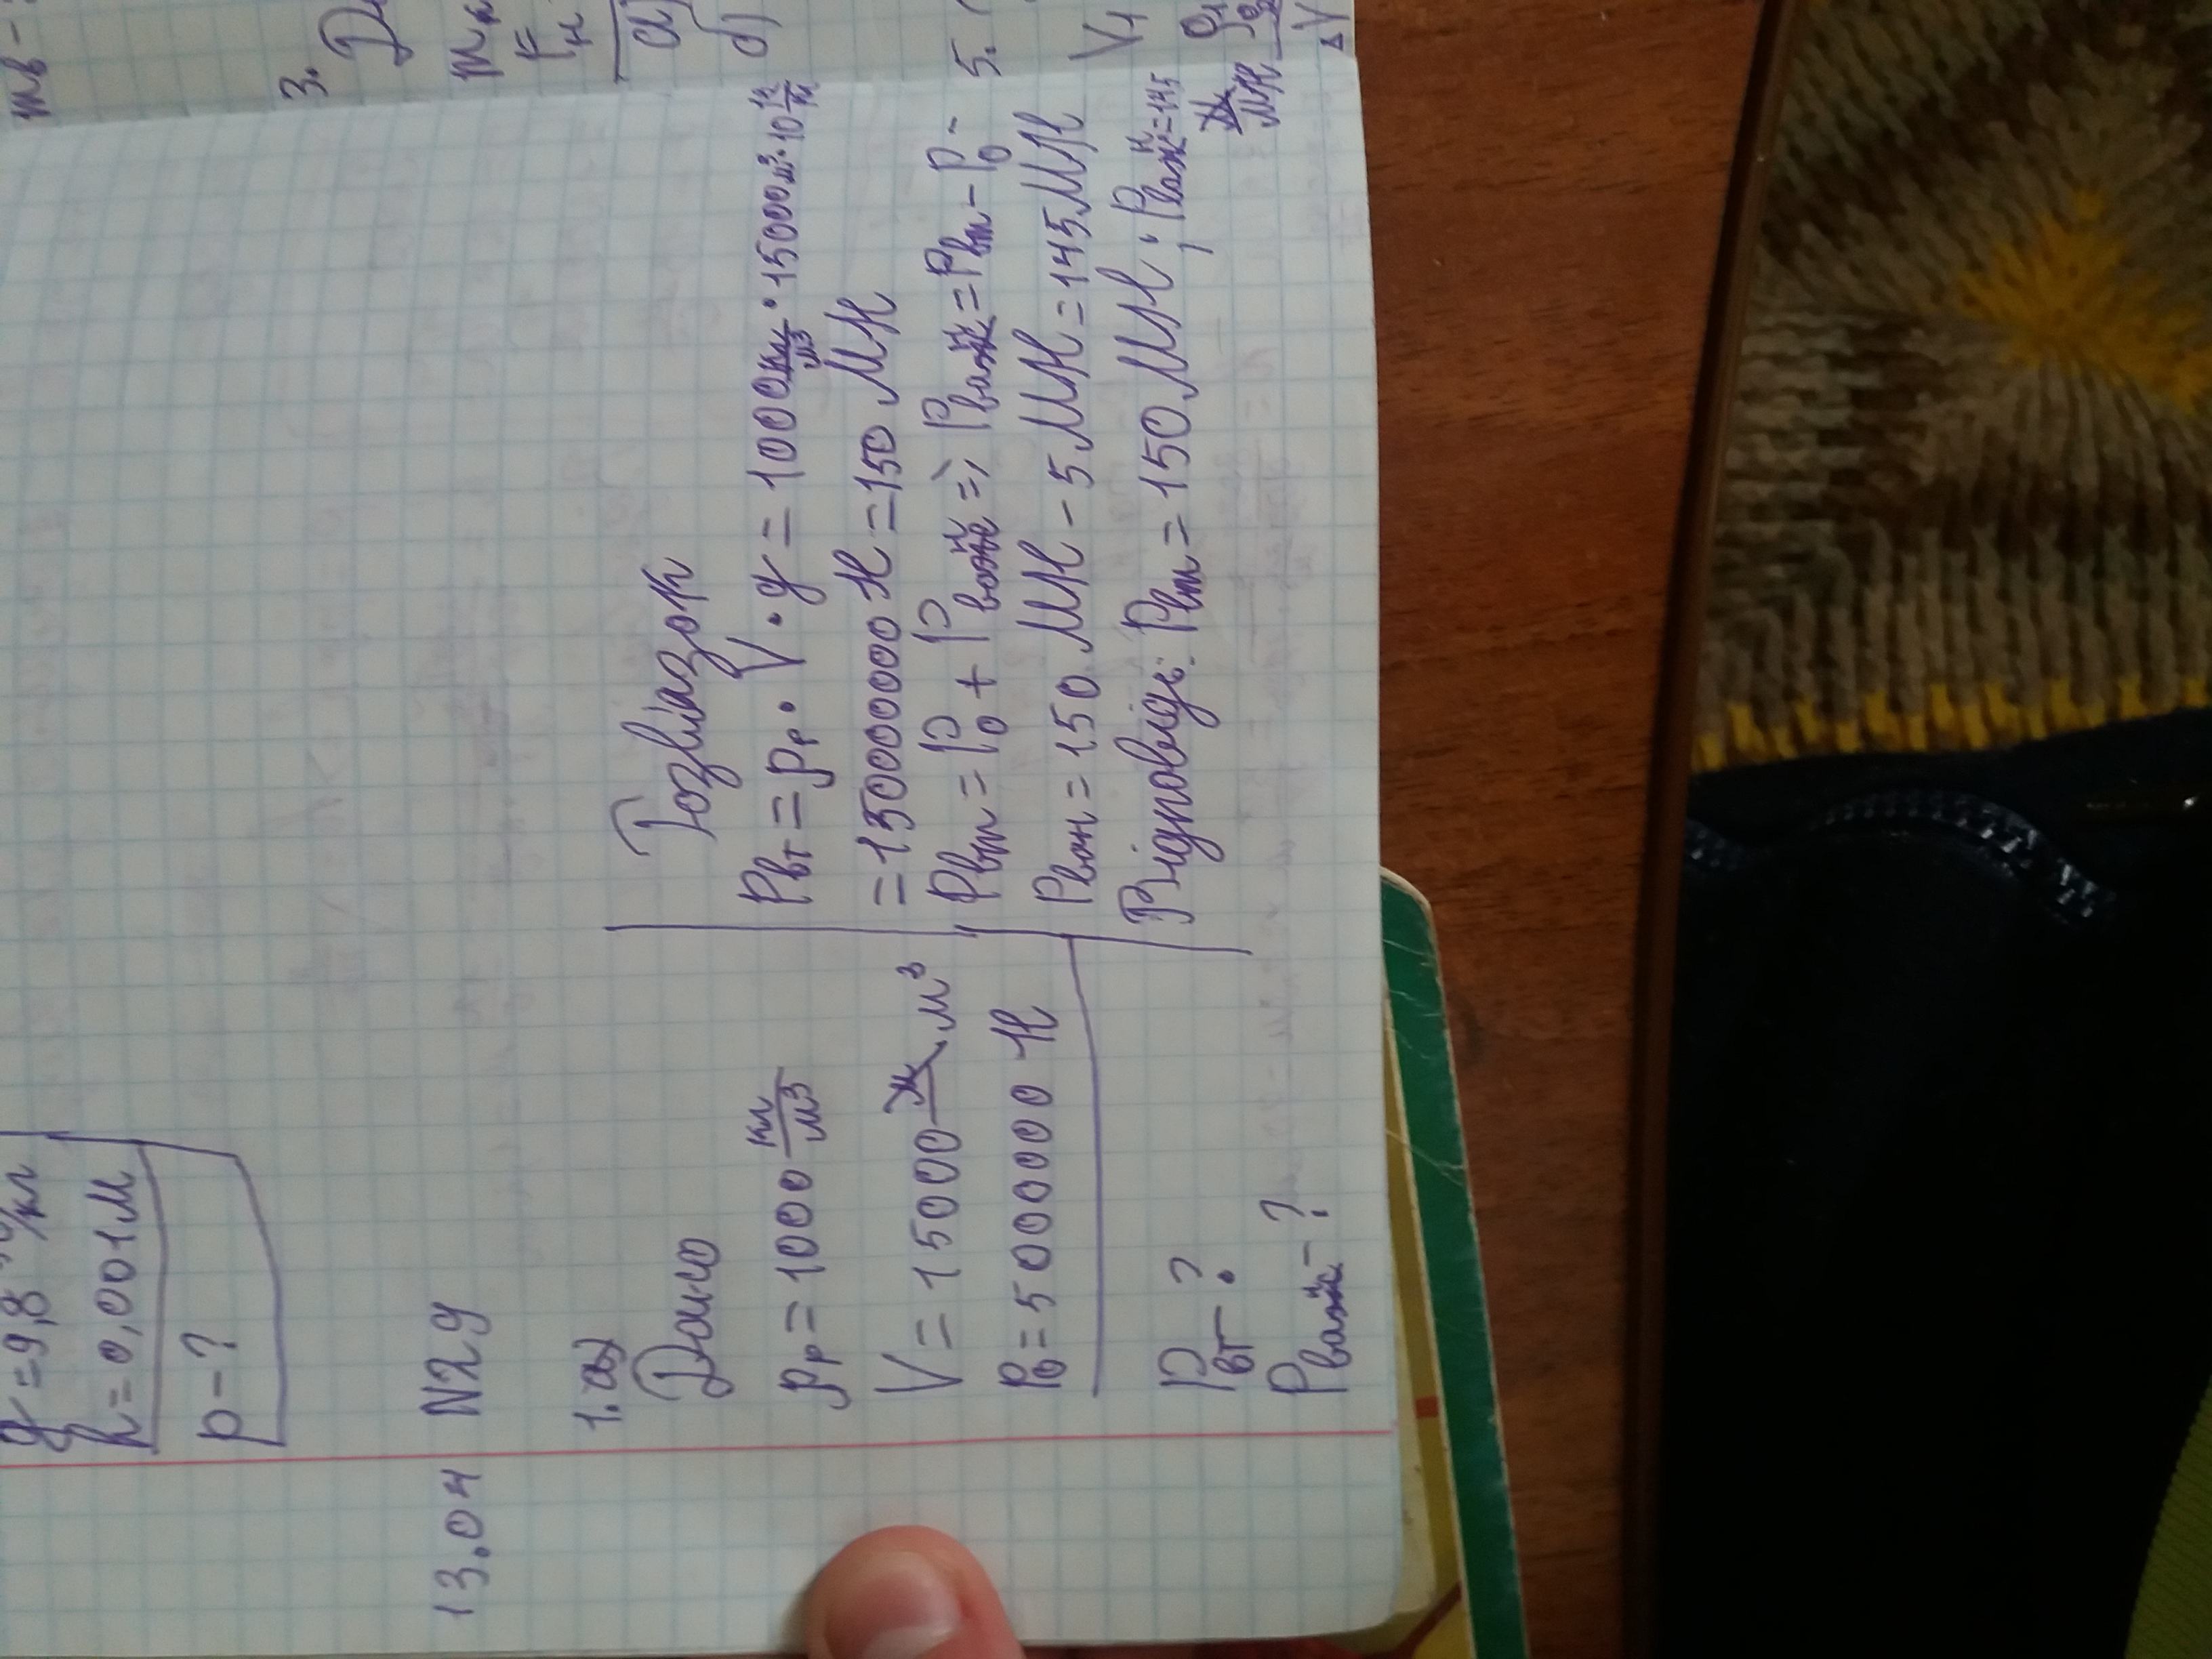 mв-
3. 
mк
Fн
а)
б)
5.
V₁
ΔV
g=9,8 /кг
h=0,001м
p-?
13.04 N29
1. а)
Дано
ρр=1000 кг/м³
V=15000 м³
P₀=5000000 Н
Pвт-?
Pван-?
Розв'язок
Pвт=ρр·V·g=1000 кг/м³·15000м³·10 Н/кг
=150000000Н=150 МН
Pвт=P₀+Pван=>, Pван=Pвт-P₀-
Pван=150 МН-5 МН=145 МН
Відповідь: Pвт=150 МН; Pван=145
МН